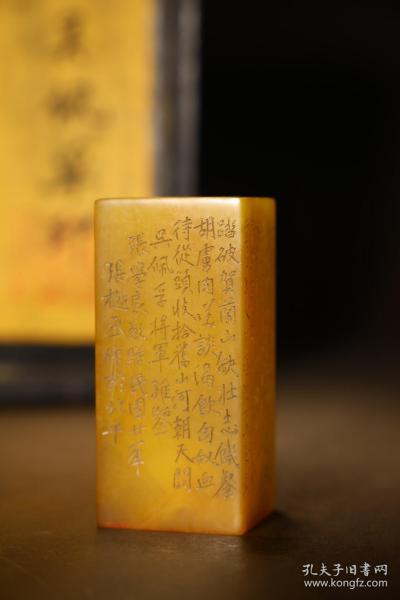 踏破賀蘭山缺壯志飢餐
胡虜肉笑談渴飲匈奴血
待從頭收拾舊山河朝天闕
吳佩孚將軍雅鑒
張學良敬贈民國廿年
張樾丞作於北平
孔夫子旧書网
www.kongfz.com